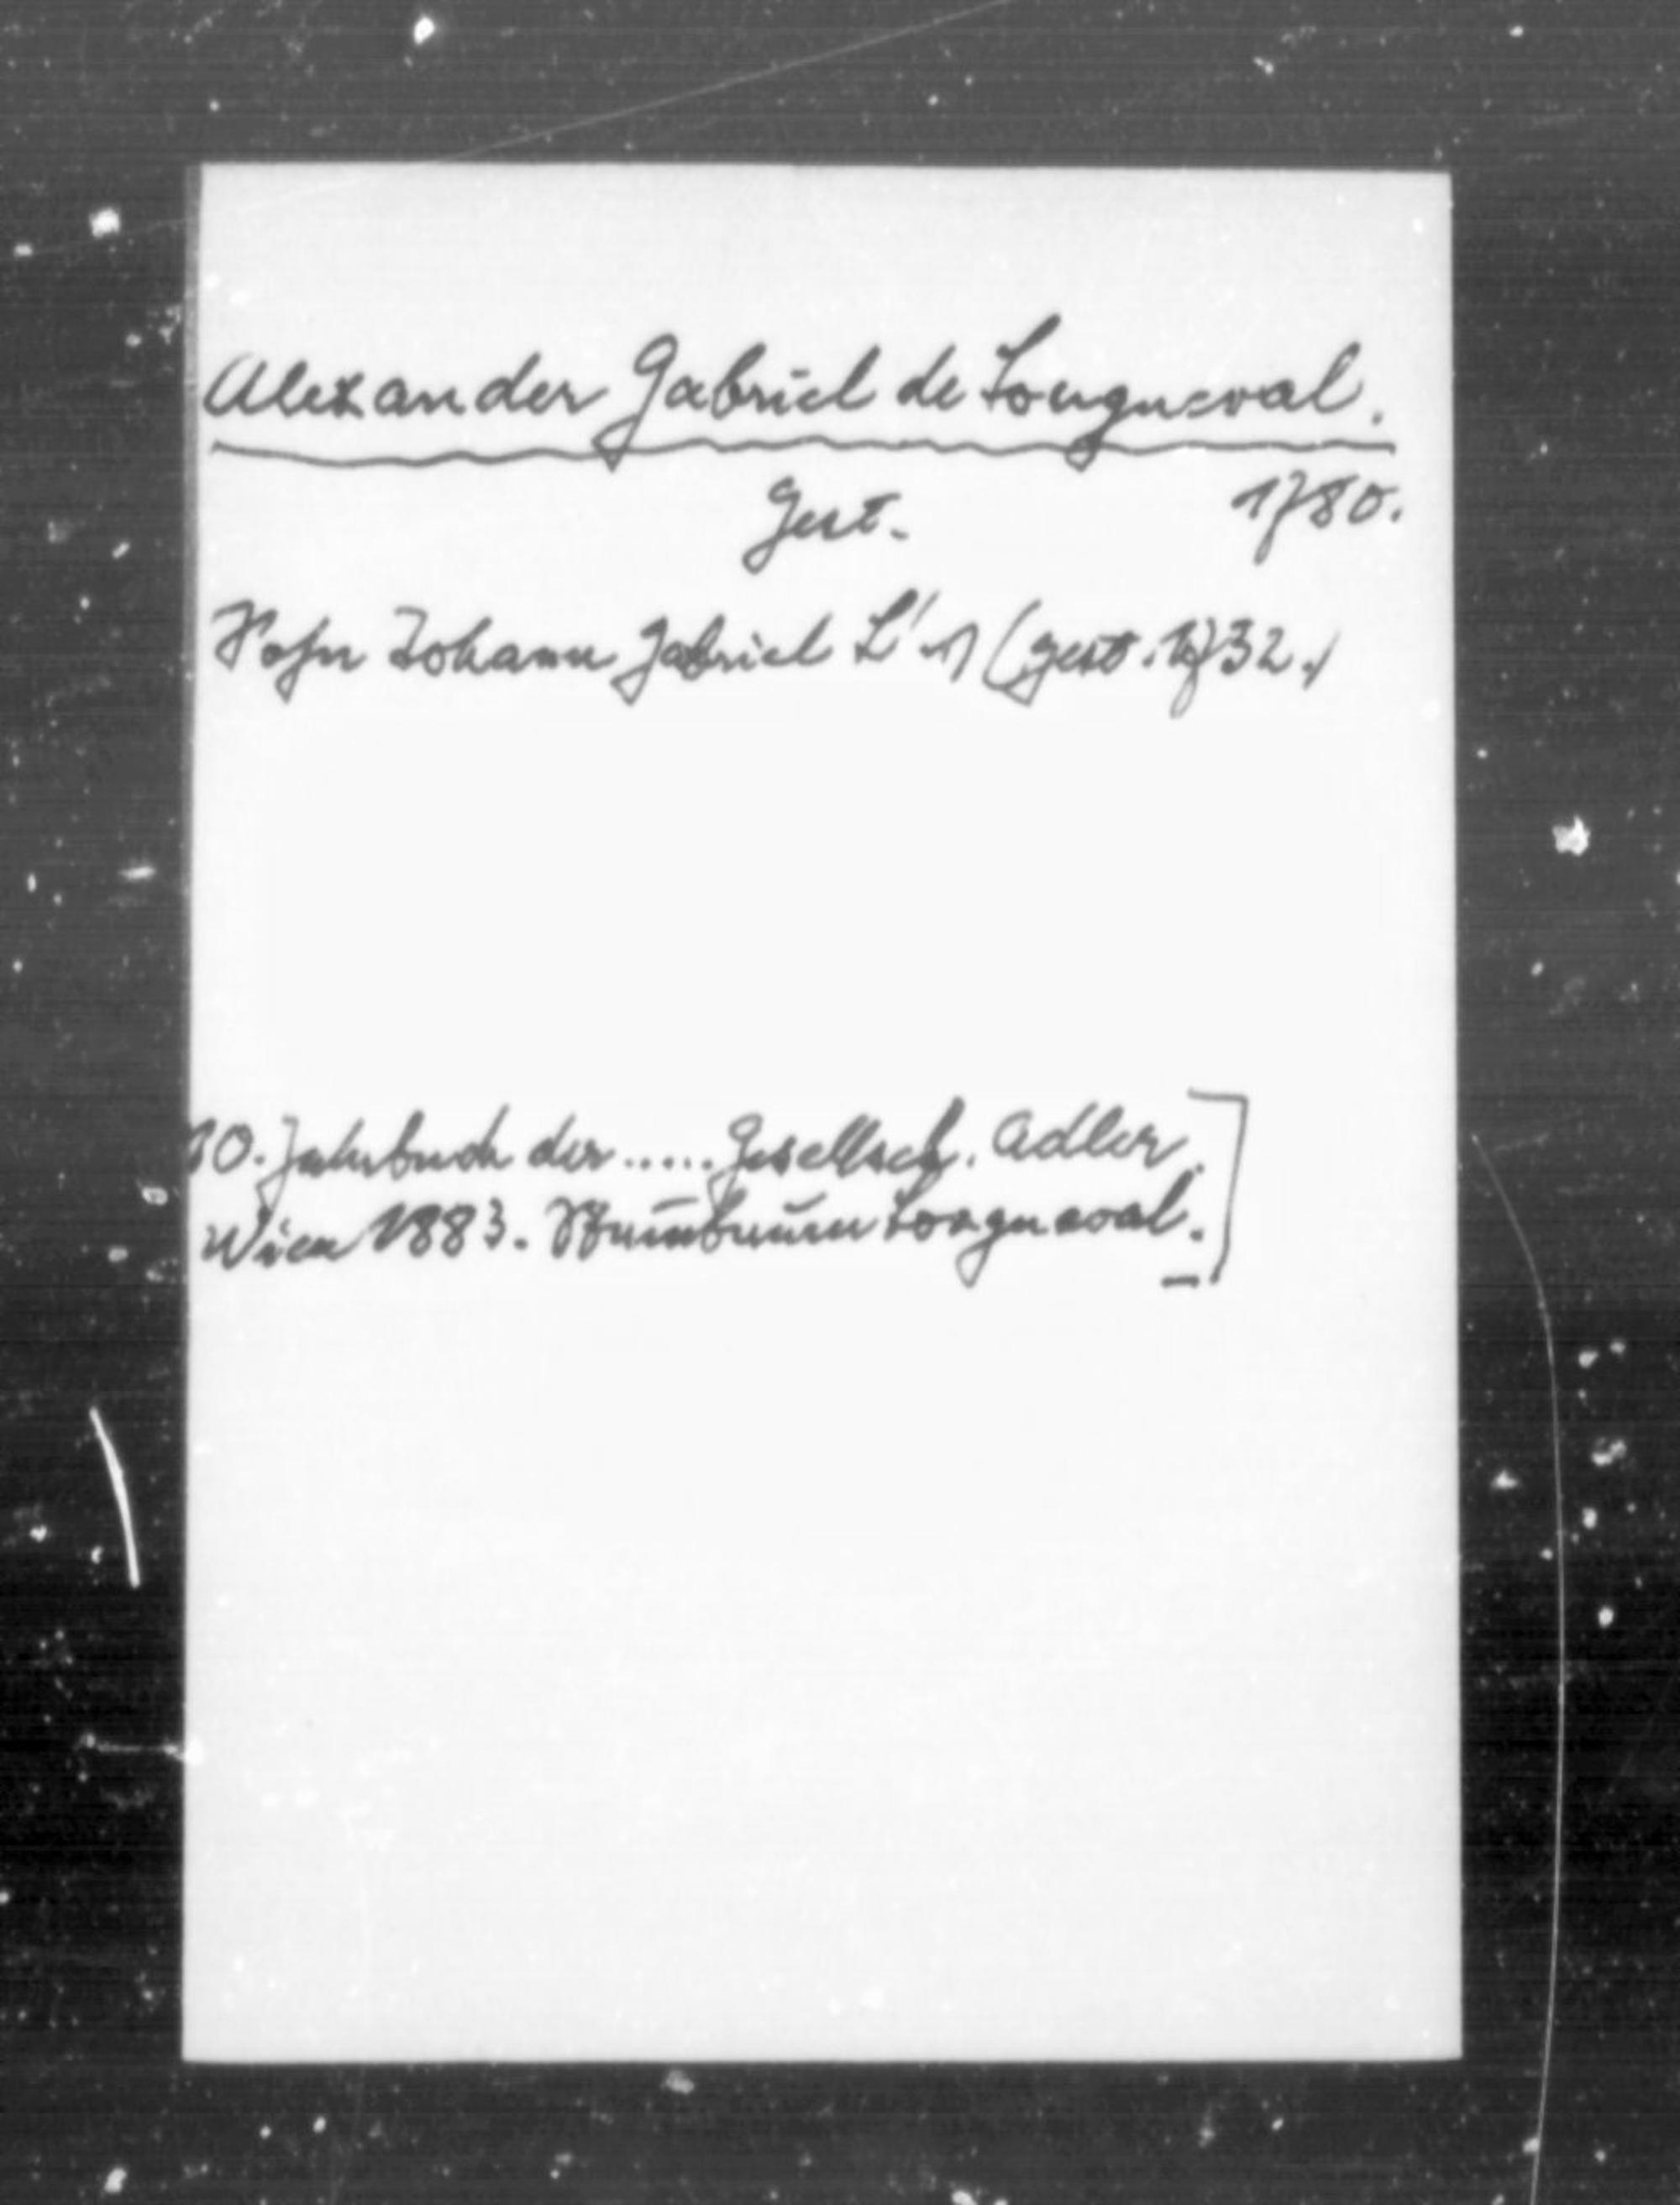 Alexander Gabriel de Longueval.
Gest. 1780.
Sohn Johann Gabriel L's (gest. 1732.)
10. Jahrbuch der ..... Gesellsch. Adler.
Wien 1883. Stammbaum Longueval.]